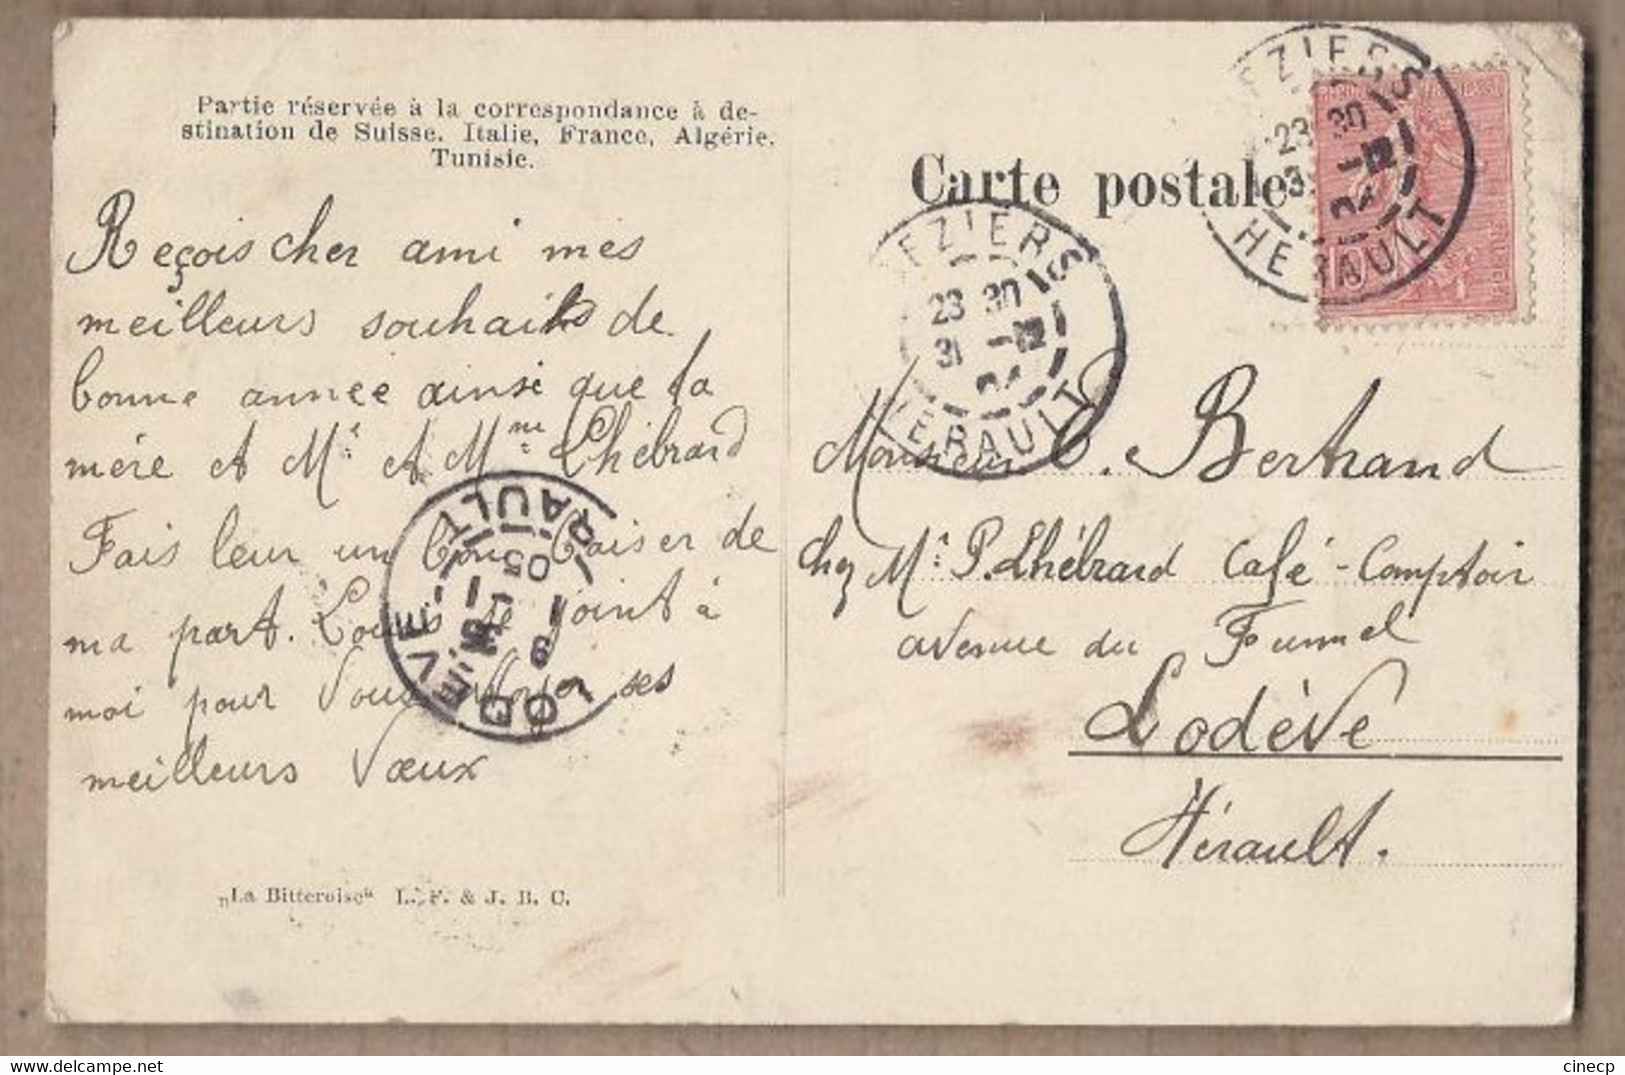 Partie réservée à la correspondance à de-
stination de Suisse, Italie, France, Algérie,
Tunisie.
Reçois cher ami mes
meilleurs souhaits de
bonne année ainsi que ta
mère et Mr et Mme Lhébrard
Fais leur un bon baiser de
ma part. Louis se joint à
moi pour vous ses
meilleurs vœux
„La Bitteroise“ L. F. & J. B. C.
Carte postale
EZIERS
23 30
31 -12
04
HERAULT
EZIERS
23 30
31 -12
04
HERAULT
Monsieur E. Bertrand
chez Mr P. Lhébrard Café-Comptoir
avenue du Fumel
Lodève
Hérault.
LODEVE
RAULT
05
cinecp